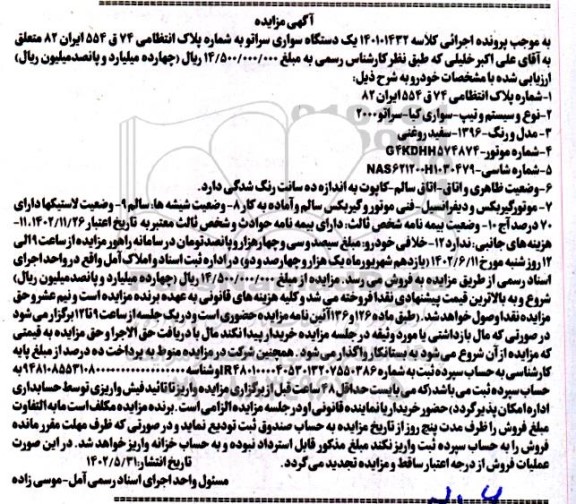 آگهی مزایده
به موجب پرونده اجرائی کلاسه ۱۴۰۱۰۱۴۳۲ یک دستگاه سواری سراتو به شماره پلاک انتظامی ۷۴ ق ۵۵۴ ایران ۸۲ متعلق
به آقای علی اکبر خلیلی که طبق نظر کارشناس رسمی به مبلغ ۱۴/۵۰۰/۰۰۰/۰۰۰ ریال (چهارده میلیارد و پانصدمیلیون ریال)
ارزیابی شده با مشخصات خودرو به شرح ذیل:
۱-شماره پلاک انتظامی ۷۴ ق ۵۵۴ ایران ۸۲
۲-نوع و سیستم و تیپ-سواری کیا-سراتو ۲۰۰۰
۳-مدل و رنگ-۱۳۹۶-سفید روغنی
۴-شماره موتور-G4KDHH574874
۵-شماره شاسی-NAS621200H1030479
۶-وضعیت ظاهری و اتاق-اتاق سالم-کاپوت به اندازه ده سانت رنگ شدگی دارد.
۷-موتورگیربکس و دیفرانسیل-فنی موتور و گیربکس سالم و آماده به کار ۸-وضعیت شیشه ها: سالم ۹-وضعیت لاستیکها دارای
۷۰ درصد آج ۱۰-وضعیت بیمه نامه شخص ثالث: دارای بیمه نامه حوادث و شخص ثالث معتبر به تاریخ اعتبار ۱۴۰۲/۱۱/۲۶. ۱۱-
هزینه های جانبی: ندارد ۱۲-خلافی خودرو: مبلغ سیصد و سی و چهار هزار و پانصد تومان در سامانه راهور مزایده از ساعت ۹ الی
۱۲ روز شنبه مورخ ۱۴۰۲/۶/۱۱ (یازدهم شهریور ماه یک هزار و چهارصد و دو) در اداره ثبت اسناد و املاک آمل واقع در واحد اجرای
اسناد رسمی از طریق مزایده به فروش می رسد. مزایده از مبلغ ۱۴/۵۰۰/۰۰۰/۰۰۰ ریال (چهارده میلیارد و پانصدمیلیون ریال)
شروع و به بالاترین قیمت پیشنهادی نقدا فروخته می شد و کلیه هزینه های قانونی به عهده برنده مزایده است و نیم عشر و حق
مزایده نقدا وصول خواهد شد. (طبق ماده ۱۲۶ و ۱۳۶ آئین نامه مزایده حضوری است و در یک جلسه از ساعت ۹ تا ۱۲ برگزار می شود
در صورتی که مال بازداشتی یا مورد وثیقه در جلسه مزایده خریدار پیدا نکند مال با دریافت حق الاجرا و حق مزایده به قیمتی
که مزایده از آن شروع می شود به بستانکار واگذار می شود. همچنین شرکت در مزایده منوط به پرداخت ده درصد از مبلغ پایه
کارشناسی به حساب سپرده ثبت به شماره و شناسه به
حساب سپرده ثبت می باشد (که می بایست حداقل ۴۸ ساعت قبل از برگزاری مزایده واریز تا تائید فیش واریزی توسط حسابداری
اداره امکان پذیر گردد) حضور خریدار یا نماینده قانونی او در جلسه مزایده الزامی است. برنده مزایده مکلف است مابه التفاوت
مبلغ فروش را ظرف مدت پنج روز از تاریخ مزایده به حساب صندوق ثبت تودیع نماید و در صورتی که ظرف مهلت مقرر مانده
فروش را به حساب سپرده ثبت واریز نکند مبلغ مذکور قابل استرداد نبوده و به حساب خزانه واریز خواهد شد. در این صورت
عملیات فروش از درجه اعتبار ساقط و مزایده تجدید می گردد. تاریخ انتشار: ۱۴۰۲/۵/۳۱
مسئول واحد اجرای اسناد رسمی آمل-موسی زاده